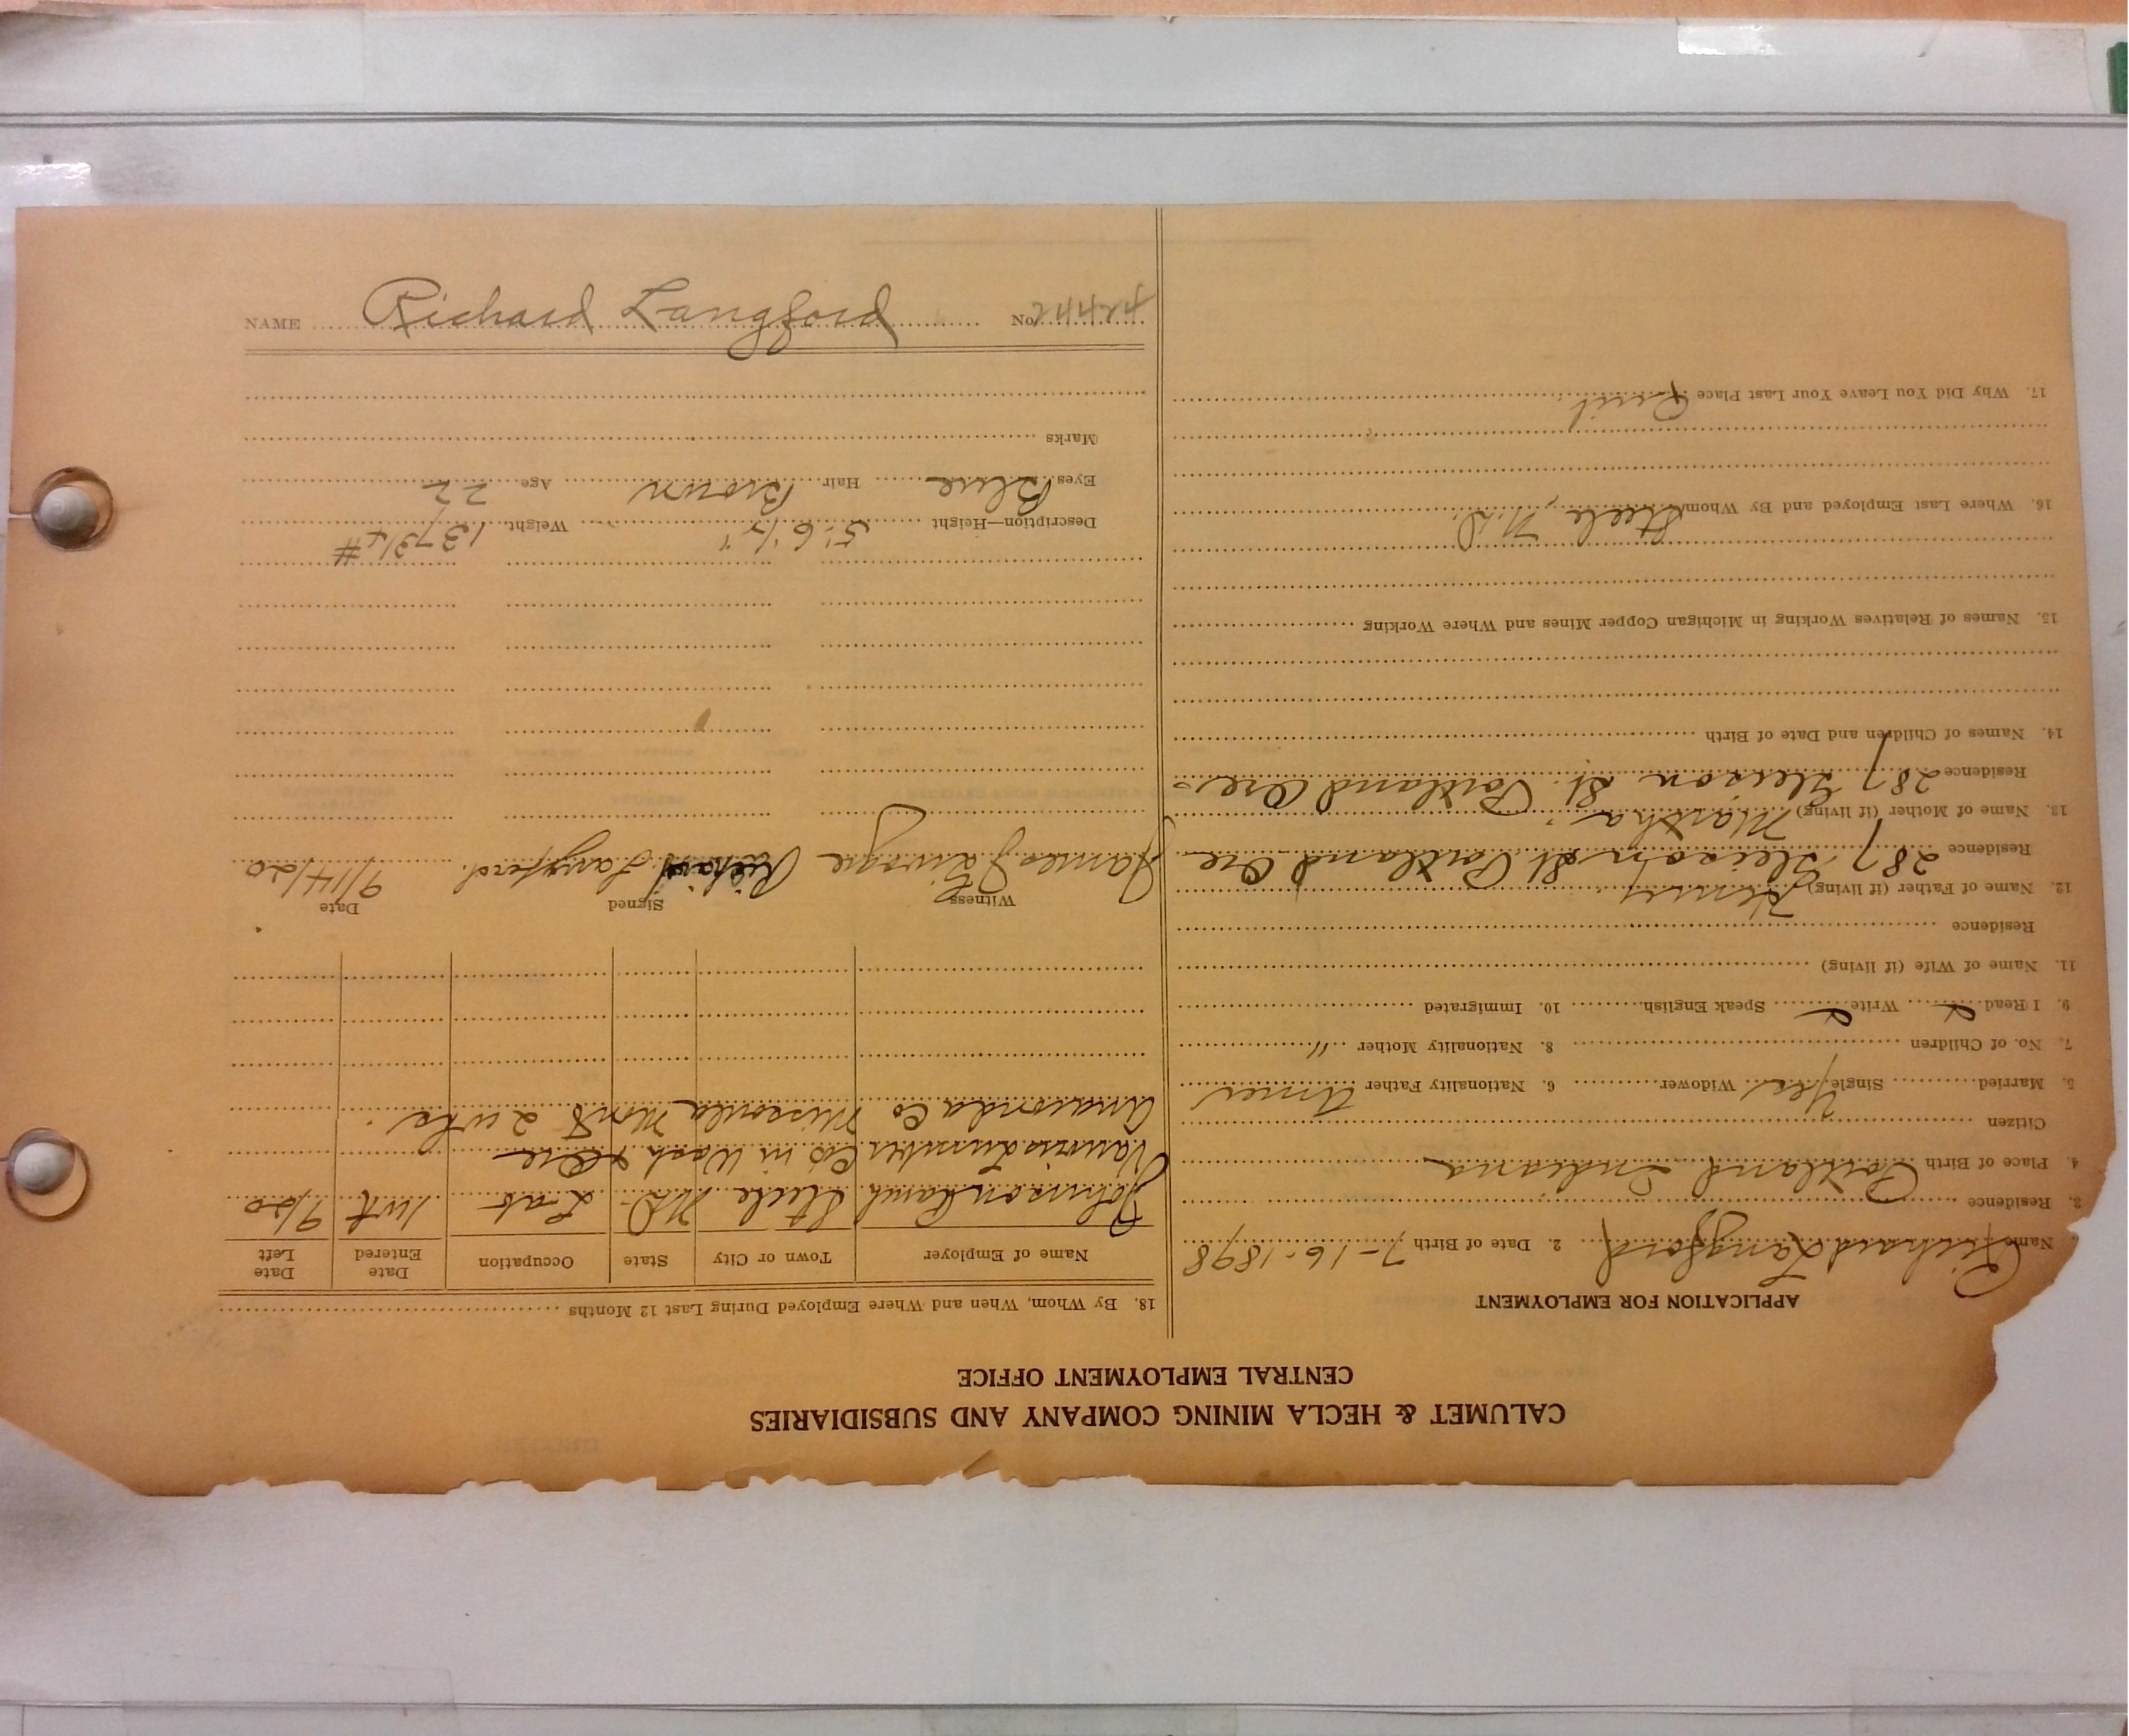 CALUMET & HECLA MINING COMPANY AND SUBSIDIARIES
CENTRAL EMPLOYMENT OFFICE
APPLICATION FOR EMPLOYMENT
Name Richard Langford 2. Date of Birth 7-16-1898
3. Residence
4. Place of Birth Portland Indiana
Citizen
5. Married Single Yes Widower 6. Nationality Father Amer
7. No. of Children 8. Nationality Mother "
9. I Read Write Speak English 10. Immigrated
11. Name of Wife (if living)
Residence
12. Name of Father (if living) Henry
Residence 287 St Portland Ore
13. Name of Mother (if living) Martha
Residence 287 St. Portland Ore
14. Names of Children and Date of Birth
15. Names of Relatives Working in Michigan Copper Mines and Where Working
16. Where Last Employed and By Whom Steele, N.D.
17. Why Did You Leave Your Last Place Quit
18. By Whom, When and Where Employed During Last 12 Months
Name of Employer Town or City State Occupation Date Entered Date Left
Johnson Ranch Steele ND Lab 1 wk 9/20
Various Lumber Co's in Wash & Ore
Anaconda Co Missoula Mont 2 wks.
Witness Signed Date
James Richard Langford. 9/14/20
Description—Height 5' 6 1/2" Weight 137 3/4 #
Eyes Blue Hair Brown Age 22
Marks
NAME Richard Langford No. 24424